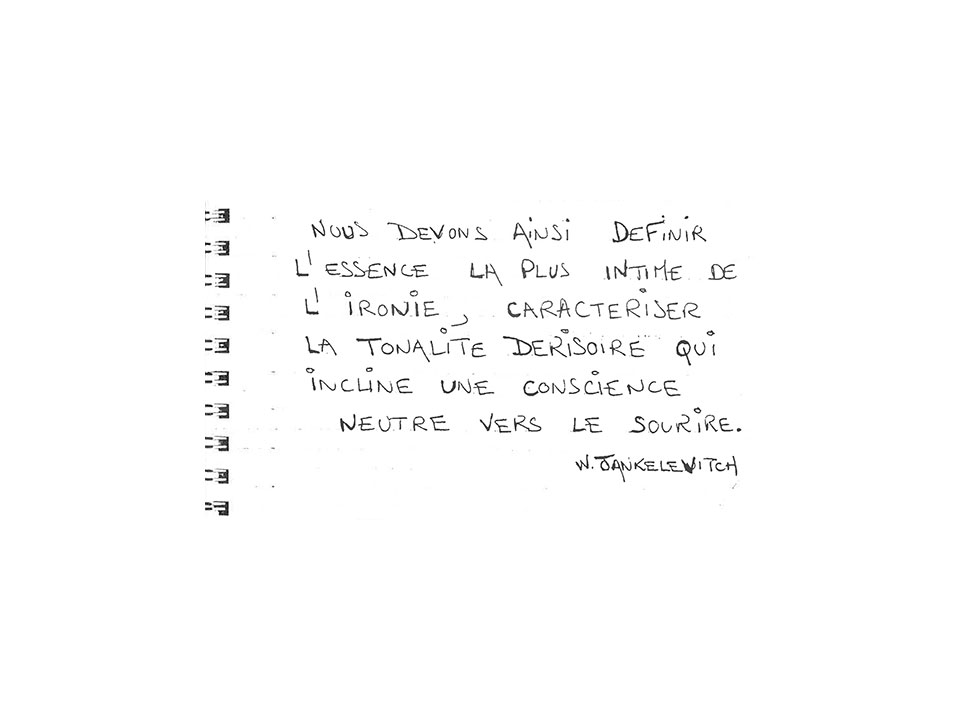 NOUS DEVONS AINSI DEFINIR
L'ESSENCE LA PLUS INTIME DE
L'IRONIE, CARACTERISER
LA TONALITE DERISOIRE QUI
INCLINE UNE CONSCIENCE
NEUTRE VERS LE SOURIRE.
W. JANKELEVITCH